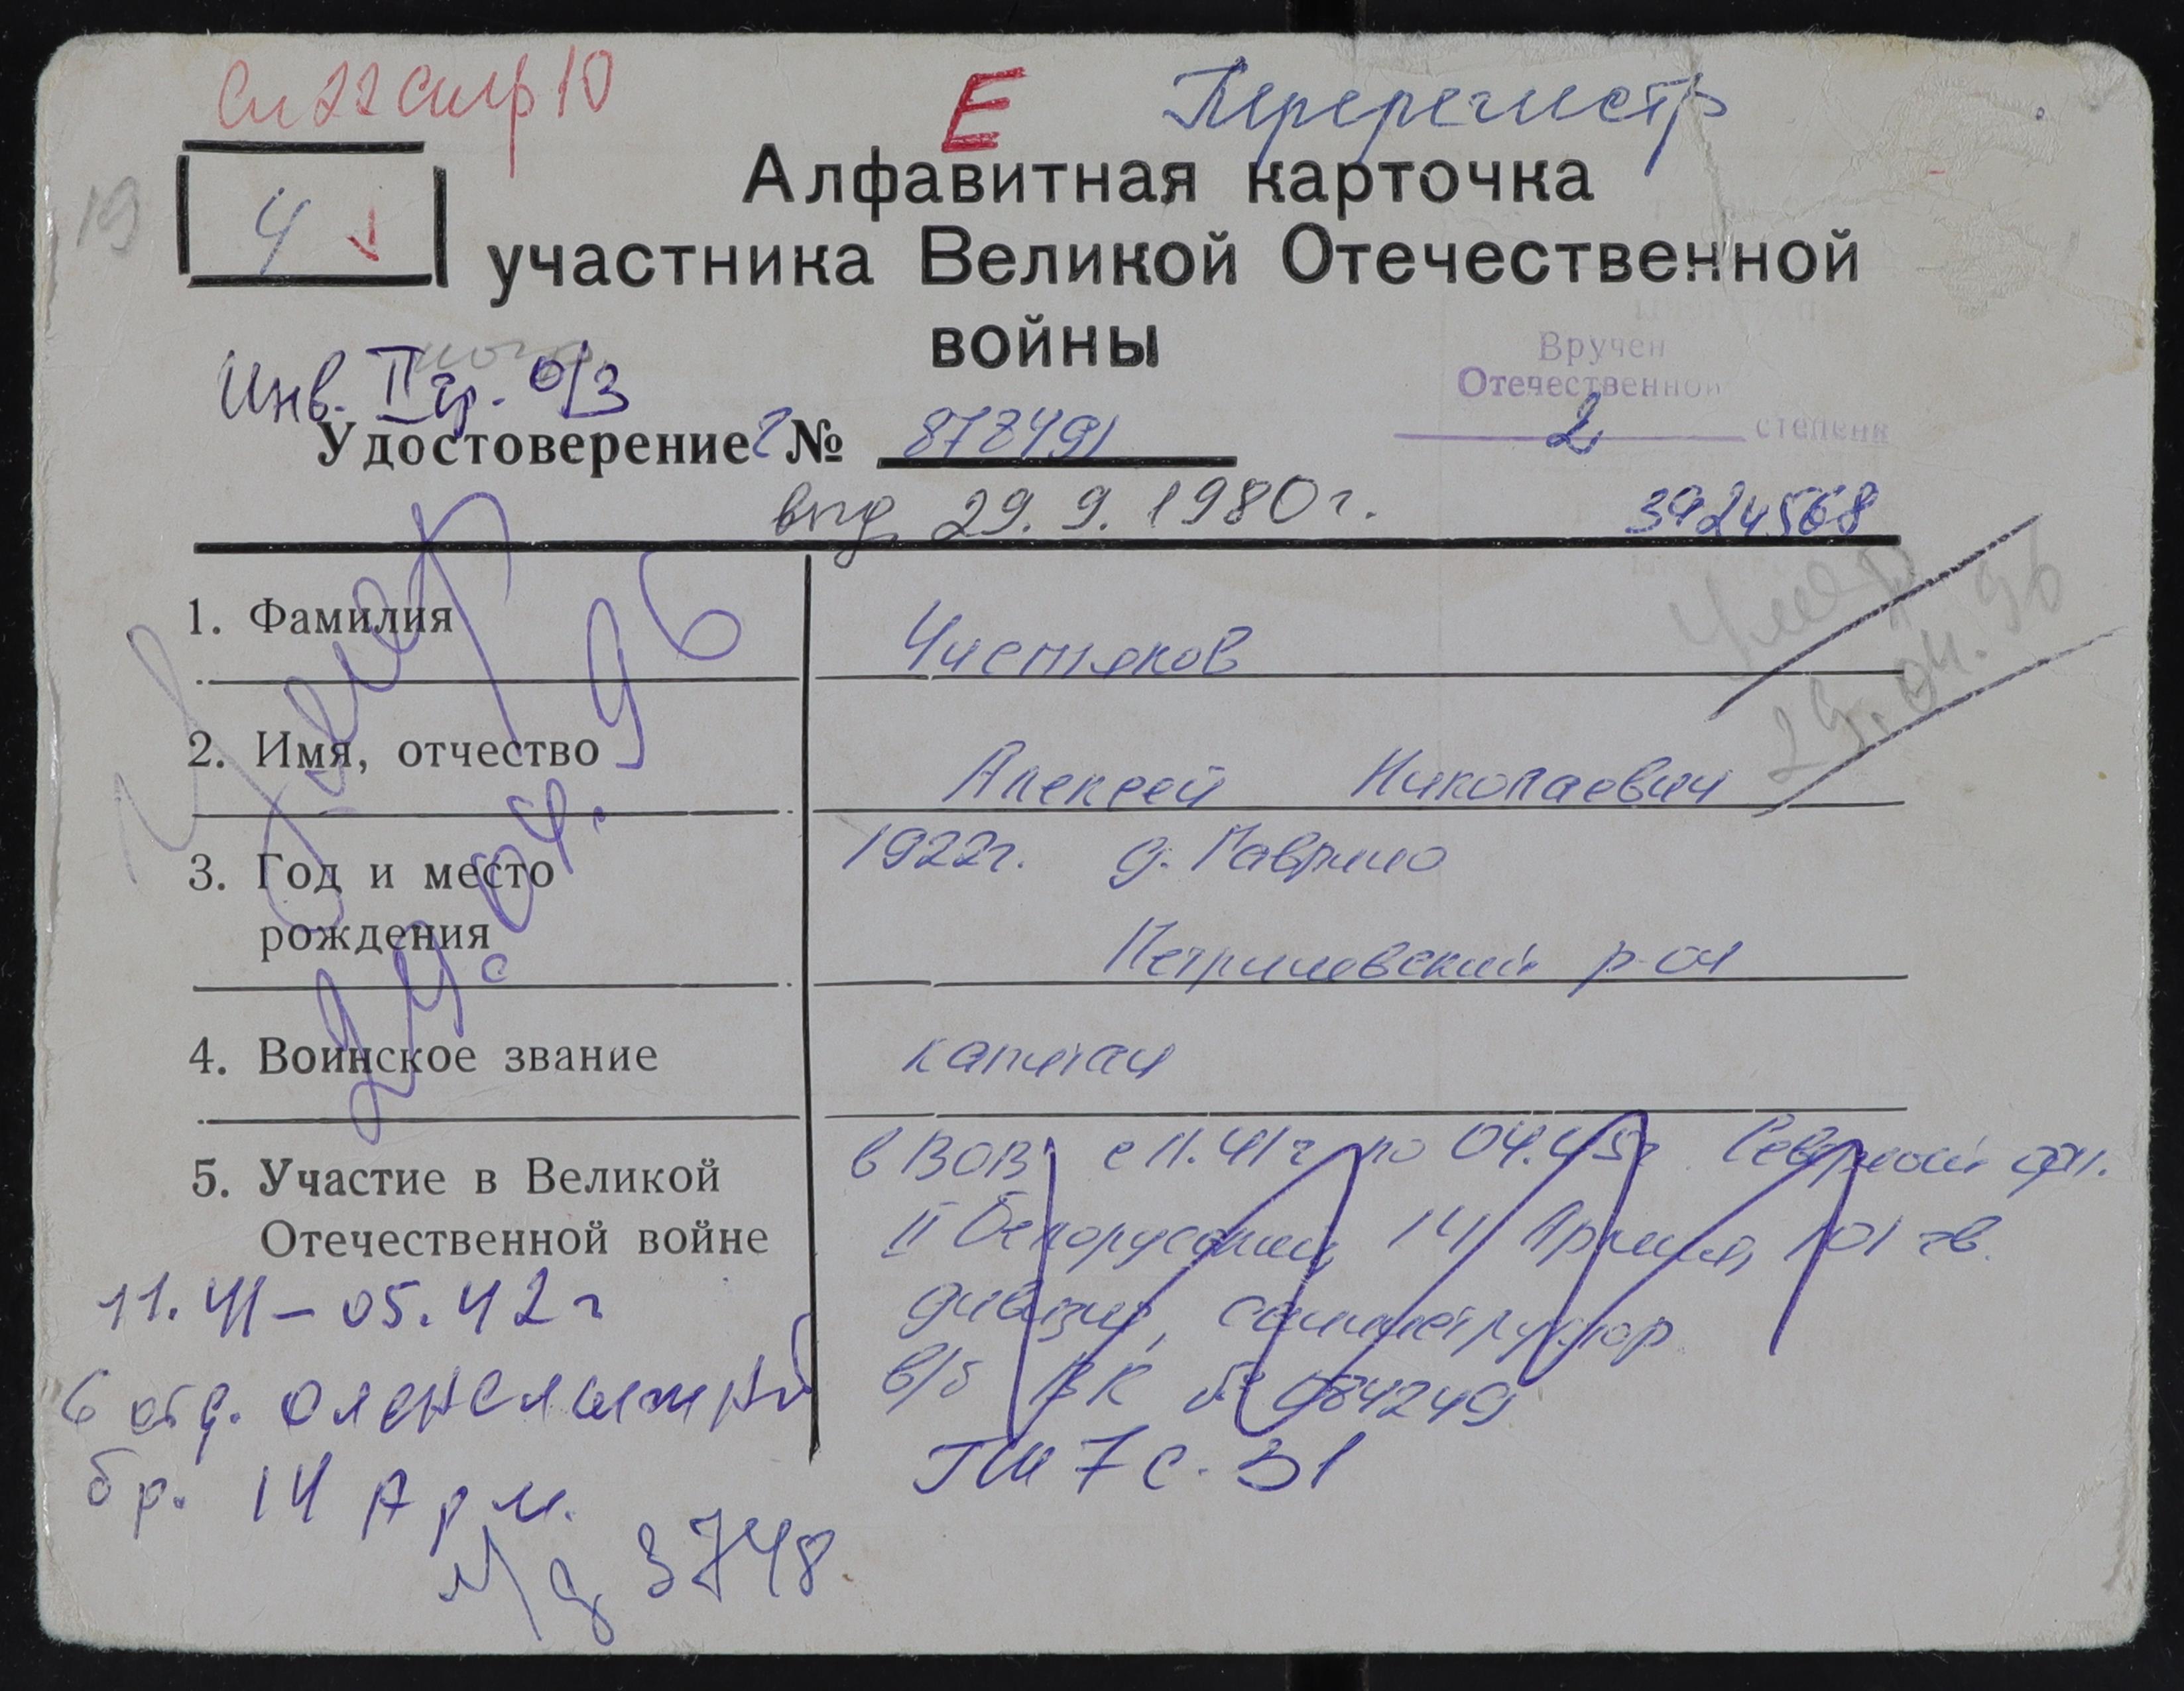 Сп 22 стр 10
Е Перерегистр
19
Ч
Алфавитная карточка
участника Великой Отечественной
войны
Инв. II гр. о/з
Вручен
Отечественной
2 степени
Удостоверение Г № 878491
выд 29. 9. 1980 г.
3924568
Умер
29.04.96
1. Фамилия Чистяков
2. Имя, отчество Алексей Николаевич
3. Год и место рождения 1922г. д. Гаврино
Петриневский р-он
4. Воинское звание капитан
Умер 96
29.04.
5. Участие в Великой Отечественной войне
в ВОВ с 11.41г по 04.45г Северный фр.
II Белорусский, 14 Армия, 101 гв.
дивизия, санинструктор
в/б ВК № 084249
ГШ 7 с. 31
11.41 – 05.42 г
6 отд. оленелыжной
бр. 14 Арм.
М/д 3748.